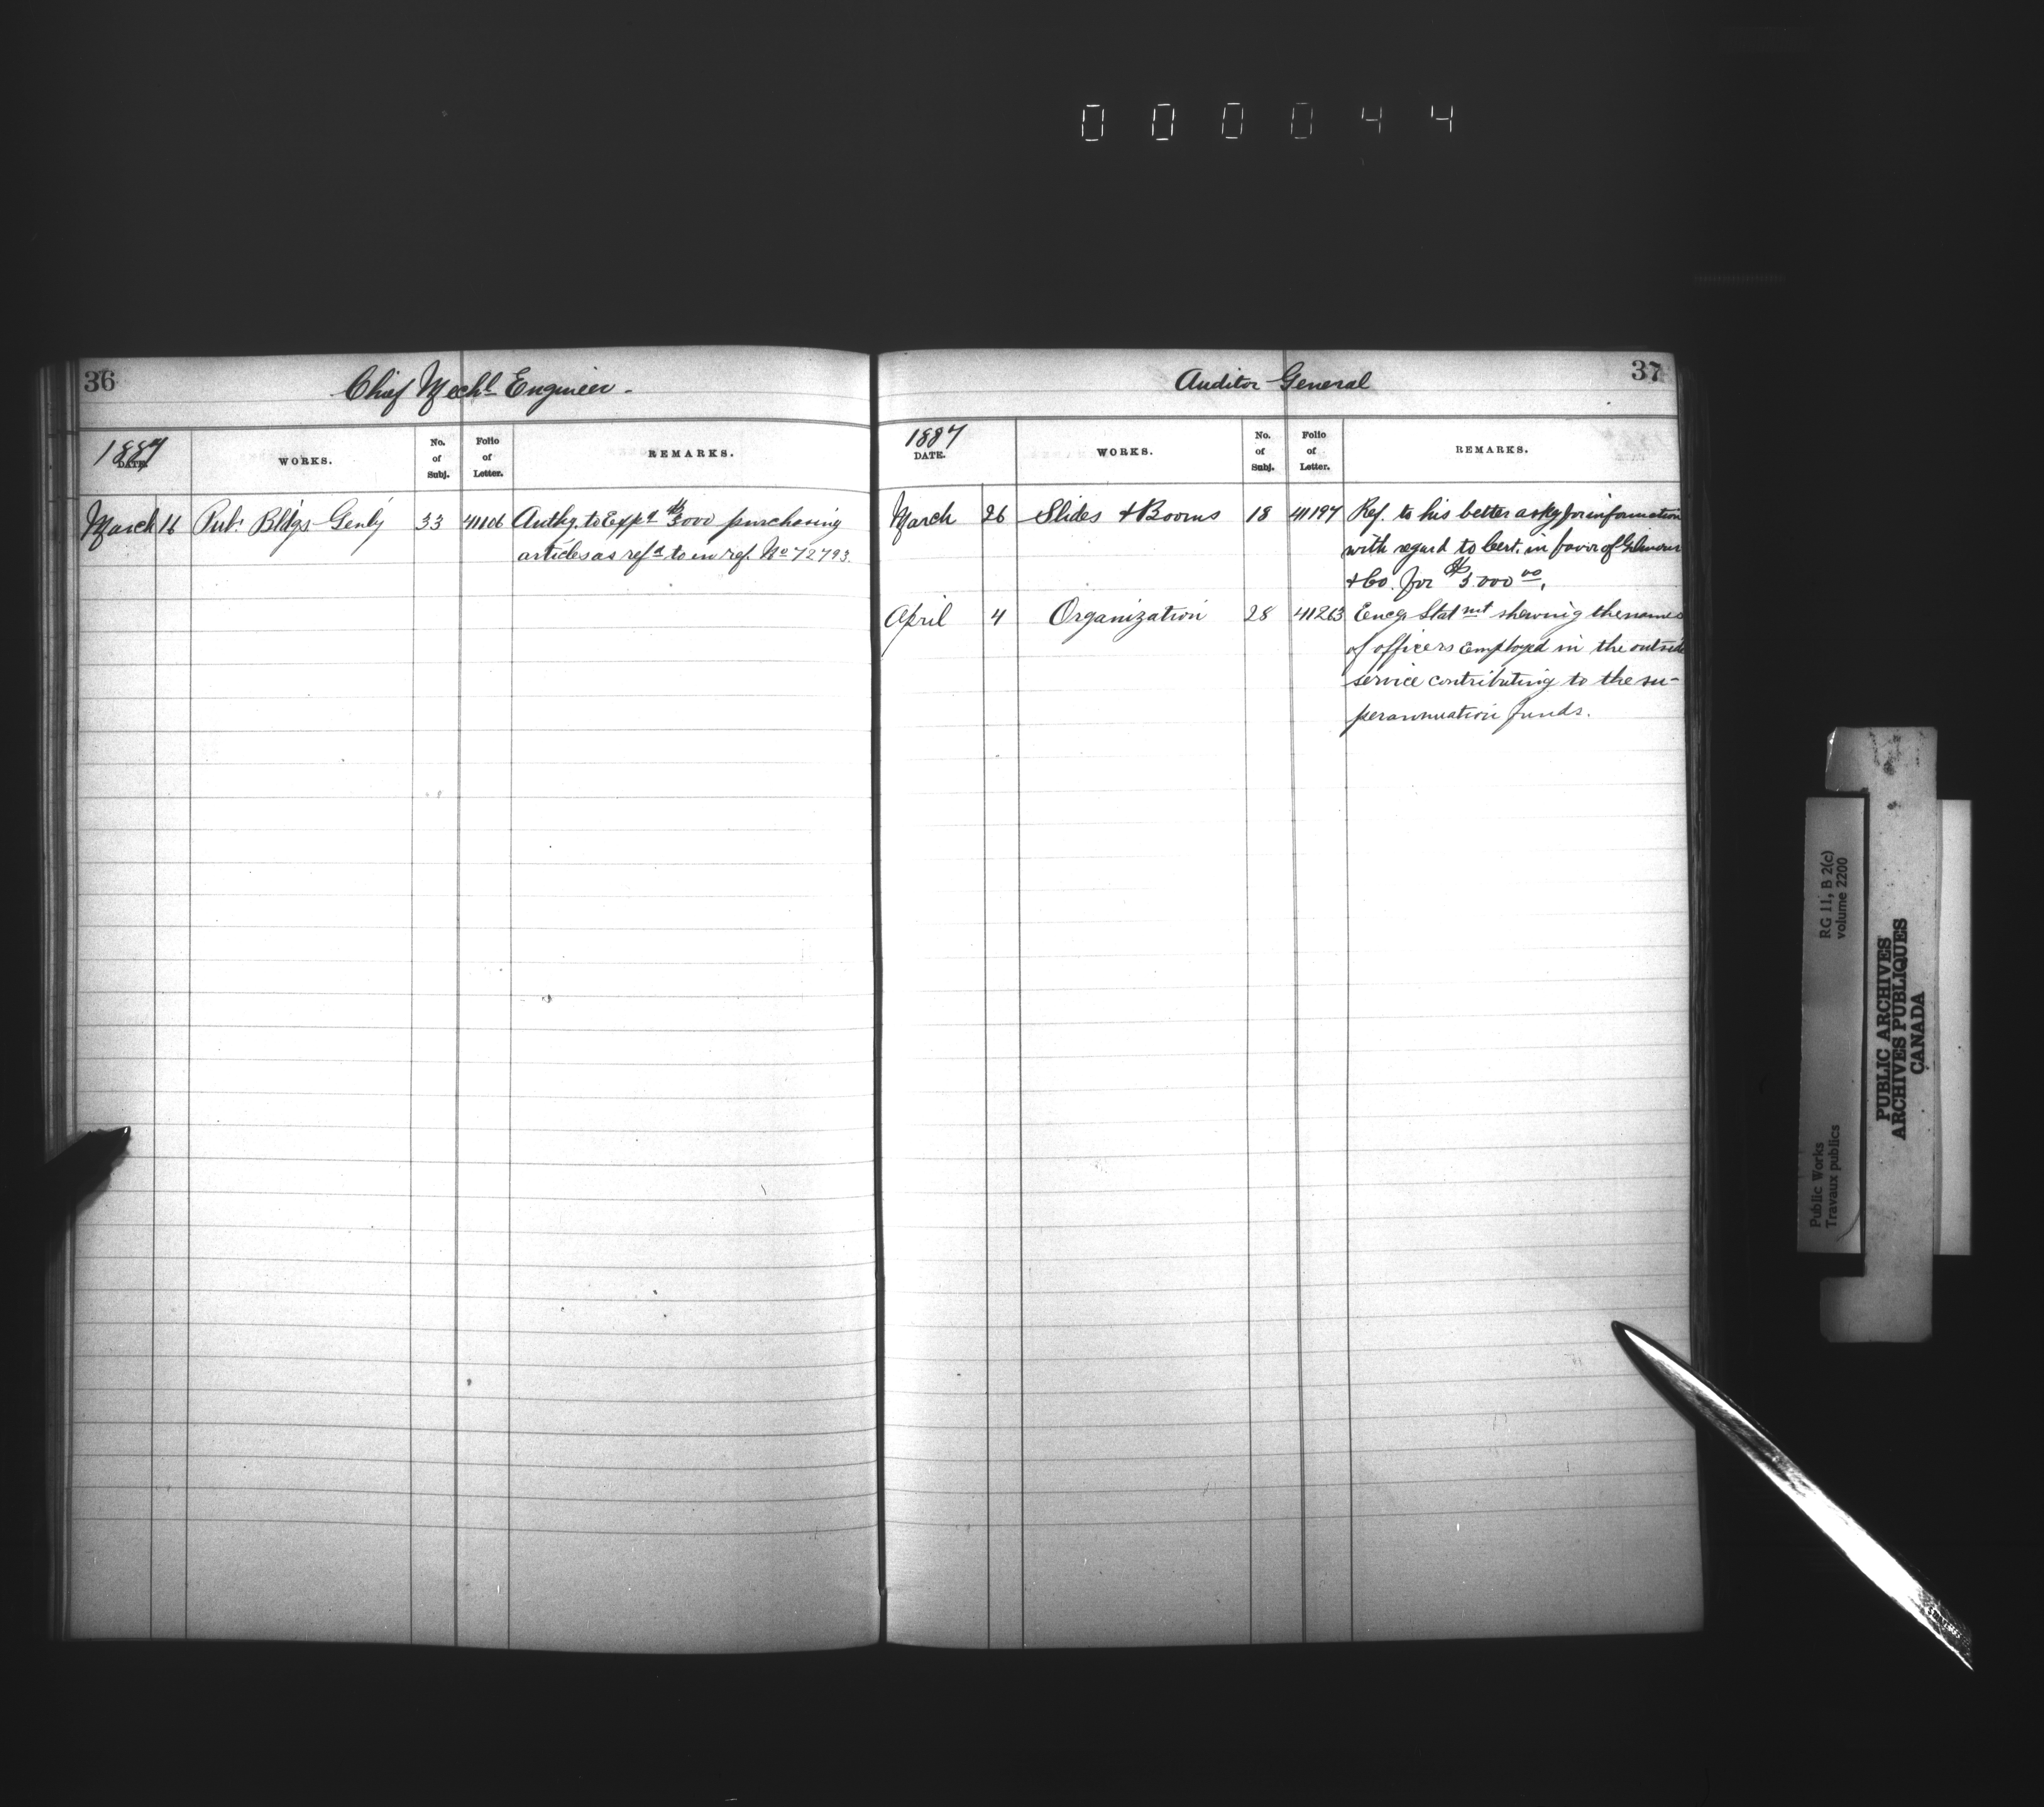 000044
36
Chief Mechl Engineer.
1887
DATE.
WORKS.
No. of Subj.
Folio of Letter.
REMARKS.
March 16 Pub. Bldgs Genly 33 41106 Authg. to Expd $3000 purchasing
articles as refd to in ref. No 72793.
37
Auditor General
1887
DATE.
WORKS.
No. of Subj.
Folio of Letter.
REMARKS.
March 26 Slides & Booms 18 41197 Ref. to his letter askg for information
with regard to Cert. in favor of Gilmour
& Co. for $3.000 00.
April 4 Organization 28 41263 Encg Statmt shewing the names
of officers employed in the outside
service contributing to the su-
perannuation funds.
RG 11, B 2(c)
volume 2200
Public Works
Travaux publics
PUBLIC ARCHIVES
ARCHIVES PUBLIQUES
CANADA